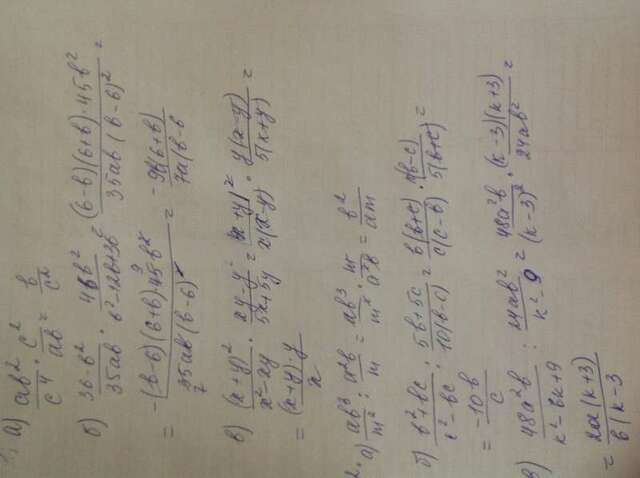 а) ab²/c⁴ · c²/ab = b/c²
б) 36-b²/35ab · 45b²/b²-12b+36 = (6-b)(6+b)·45b²/35ab(b-6)² =
= -(b-6)(6+b)·45b² 9/35ab(b-6)² 7 = -9b(6+b)/7a(b-6
в) (x+y)²/x²-xy · xy-y²/5x+5y = (x+y)²/x(x-y) · y(x-y)/5(x+y) =
= (x+y)·y/x
2. а) ab³/m² : a²b/m = ab³/m² · m/a²b = b²/am
б) b²+bc/c²-bc : 5b+5c/10(b-c) = b(b+c)/c(c-b) · (b-c)/5(b+c) =
= -10b/c
в) 48a²b/k²-6k+9 : 24ab²/k²-9 = 48a²b/(k-3)² · (k-3)(k+3)/24ab² =
= 2a(k+3)/b(k-3